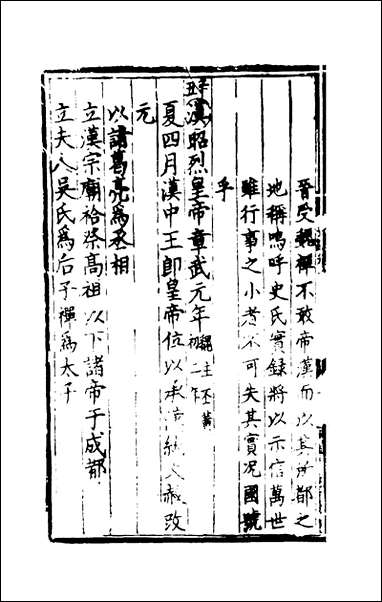 晉受魏禪不敢帝漢而以其所都之
地稱嗚呼史氏實錄將以示信萬世
雖行事之小者不可失其實况國號
乎
漢昭烈皇帝章武元年魏主丕黃初二年
夏四月漢中王即皇帝位以承漢統大赦改
元
以諸葛亮為丞相
立漢宗廟祫祭高祖以下諸帝于成都
立夫人吳氏為后子禪為太子